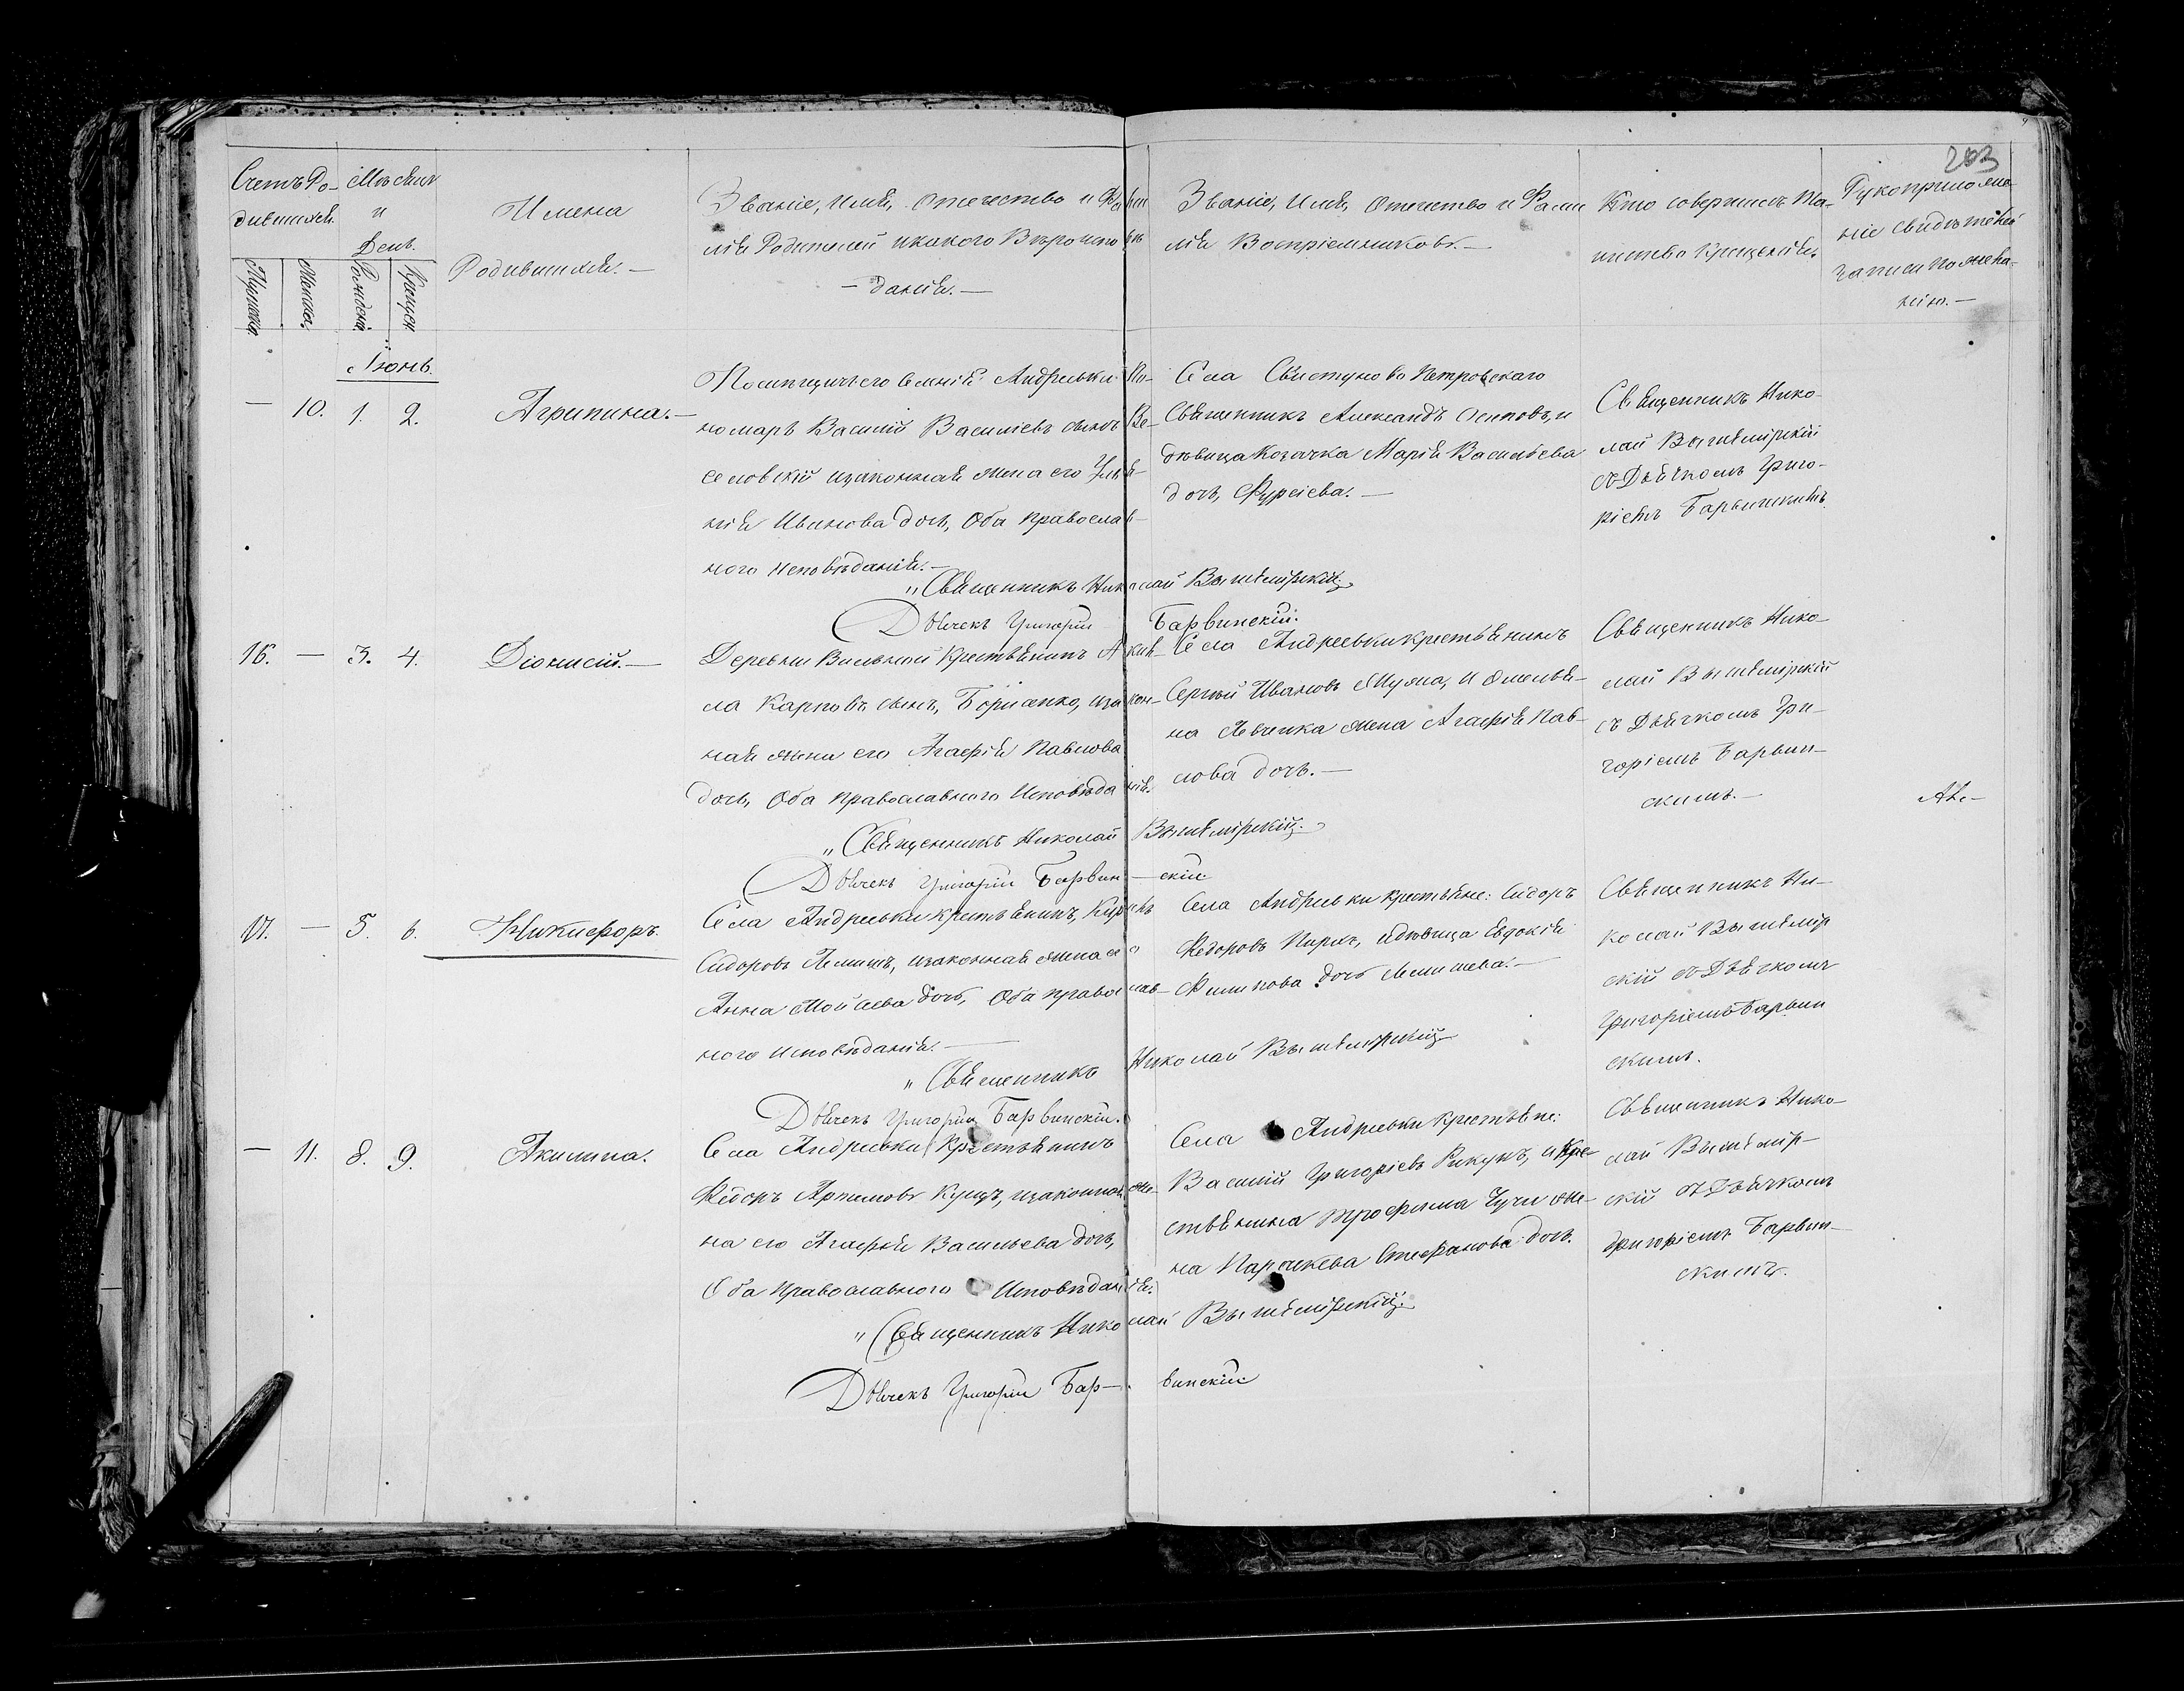 203
Счетъ Ро-
дившихся.
Мужеска.
Женска.
Мѣсяцъ
и
День.
Рожденія.
Крещен.
Имена
Родившихся.—
Званіе, Имя, Отечество и Фами
лія Родителей и какого Вѣроиспо
— данія.—
Званіе, Имя, Отечество и Фами
лія Воспріемниковъ.—
Кто совершилъ Та-
инство Крещенія.
Рукоприложе-
ніе свидѣтелей
записи по жела-
нію.—
Іюнь.
— 10. 1. 2.
Агрипина.—
села Андреевки По-
номаръ Василій Васильевъ сынъ Ве-
селовскій и законная жена его Уль
нія Иванова дочь, Оба Православ-
ного исповѣданія.—
Села Свистуново Петровскаго
Священникъ Александъ Осиповъ, и
дѣвица Козачка Марія Васильева
дочь, Фурсіева.—
Священникъ Нико-
лай Вышемірскій
съ Дьячкомъ Григо-
ріемъ Барвинскимъ.
"Священникъ Николай Вышемірскій
Дьячекъ Григорій Барвинскій.
16. — 3. 4.
Діонисій.—
Деревни Вильной Крестьянинъ Аки
ла Карповъ сынъ, и закон-
ная жена его Агафія Павлова
дочь, Оба Православного Исповѣданія.
Села Андреевки крестьянинъ
Сергѣй Ивановъ и Омелья-
на жена Агафія Пав-
лова дочь.—
Священникъ Нико-
лай Вышемірскій
съ Дьячкомъ Гри-
горіемъ Барвин-
скимъ.—
"Священникъ Николай Вышемірскій.
Дьячекъ Григорій Барвин—скій
17. — 5. 6.
Никифоръ.
Села Андреевки крестьянинъ,
Сидоровъ и законная жена его
Анна Мойсеева дочь, Оба православ-
ного исповѣданія.—
Села Андреевки крестьяне: Сидоръ
Федоровъ и дѣвица Евдокія
Филипова дочь
Священникъ Ни-
колай Вышемір
скій съ Дьячкомъ
Григоріемъ Барвин
скимъ.
"Священникъ Николай Вышемірскій
Дьячекъ Григорій Барвинскій.
— 11. 8. 9.
Акилина.
Села Андреевки Крестьянинъ
Ѳедоръ и законная же-
на его Агафія Васильева дочь,
Оба Православного Исповѣданія.
Села Андреевки крестьяне:
Василій Григоріевъ и Кре-
стьянина Трофима же-
на Параскева Стефанова дочь.
Священникъ Нико-
лай Вышемір-
скій съ Дьячкомъ
Григоріемъ Барвин-
скимъ.
"Священникъ Николай Вышемірскій
Дьячекъ Григорій Бар—винскій